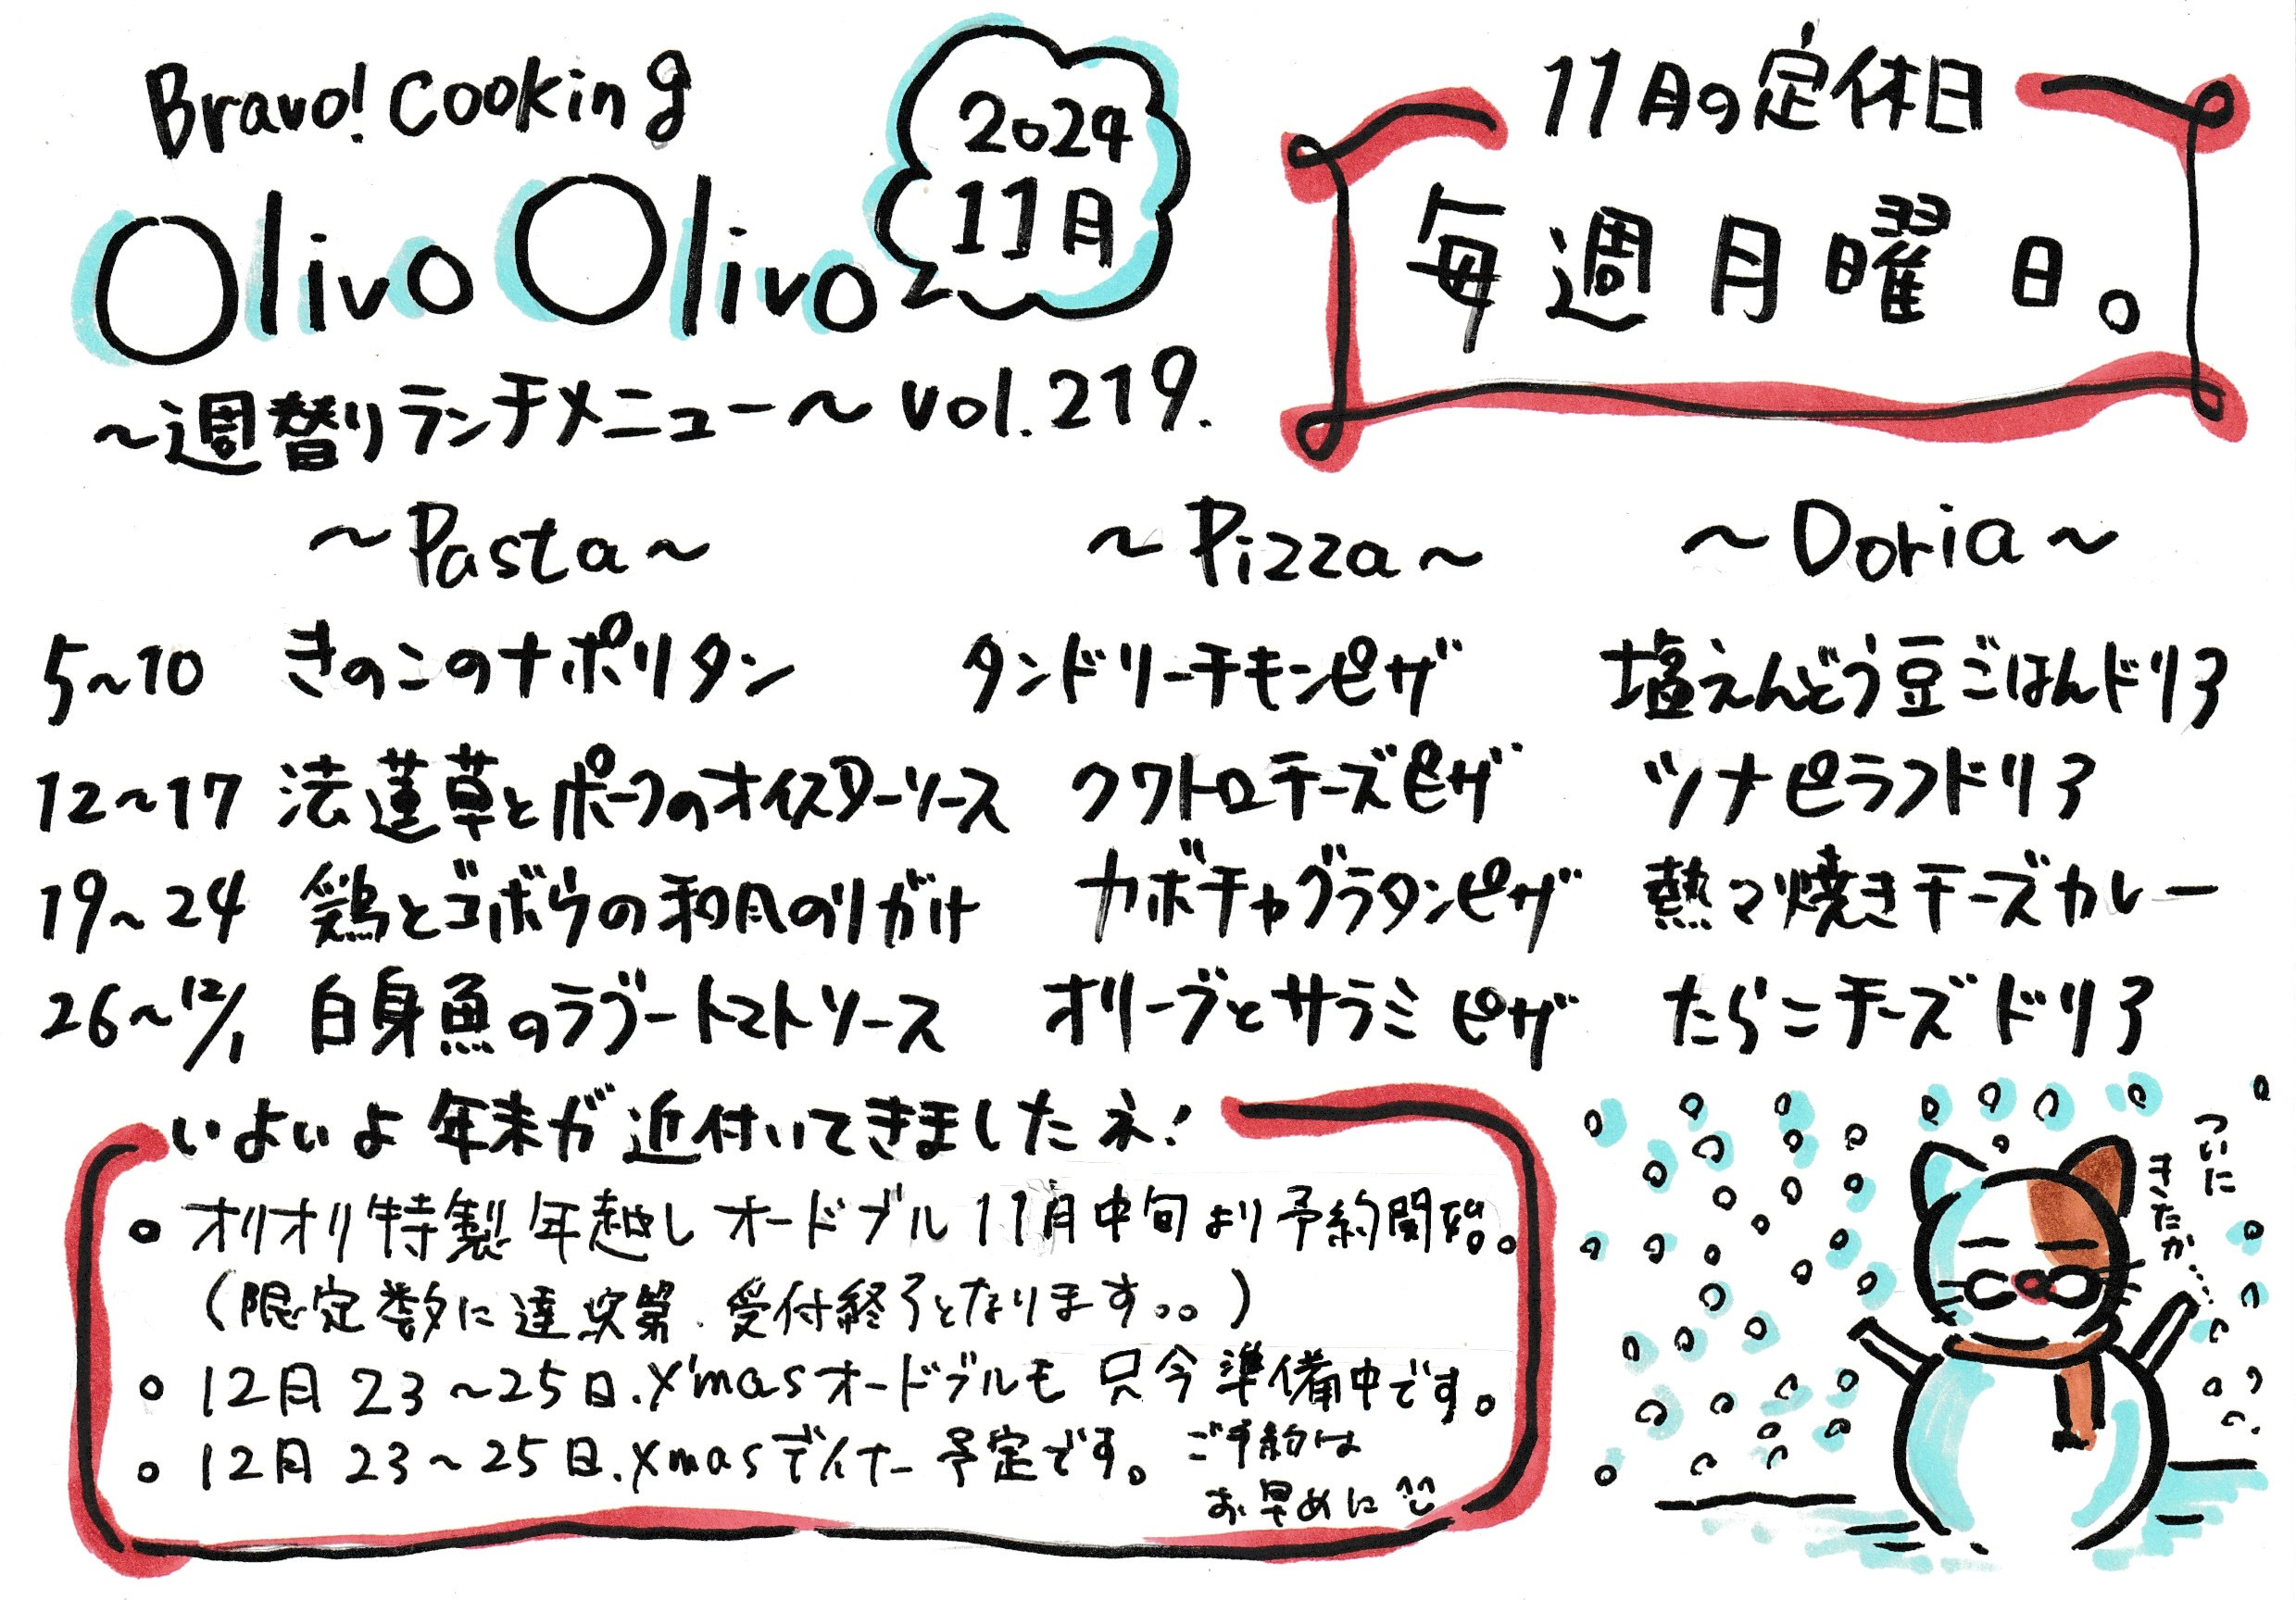 Bravo! Cooking
Olivo Olivo
2024
11月
〜週替りランチメニュー〜 vol.219.
11月の定休日
毎週月曜日。
〜Pasta〜 〜Pizza〜 〜Doria〜
5〜10 きのこのナポリタン タンドリーチキンピザ 塩えんどう豆ごはんドリア
12〜17 法蓮草とポークのオイスターソース クワトロチーズピザ ツナピラフドリア
19〜24 鶏とゴボウの和風のりがけ カボチャグラタンピザ 熱々焼きチーズカレー
26〜12/1 白身魚のラグートマトソース オリーブとサラミピザ たらこチーズドリア
いよいよ年末が近付いてきましたネ!
○ オリオリ特製年越しオードブル11月中旬より予約開始。
(限定数に達し次第、受付終了となります。。)
○ 12月23〜25日.X'masオードブルも只今準備中です。
○ 12月23〜25日.Xmasディナー予定です。ご予約は
お早めに
ついに
きたか……